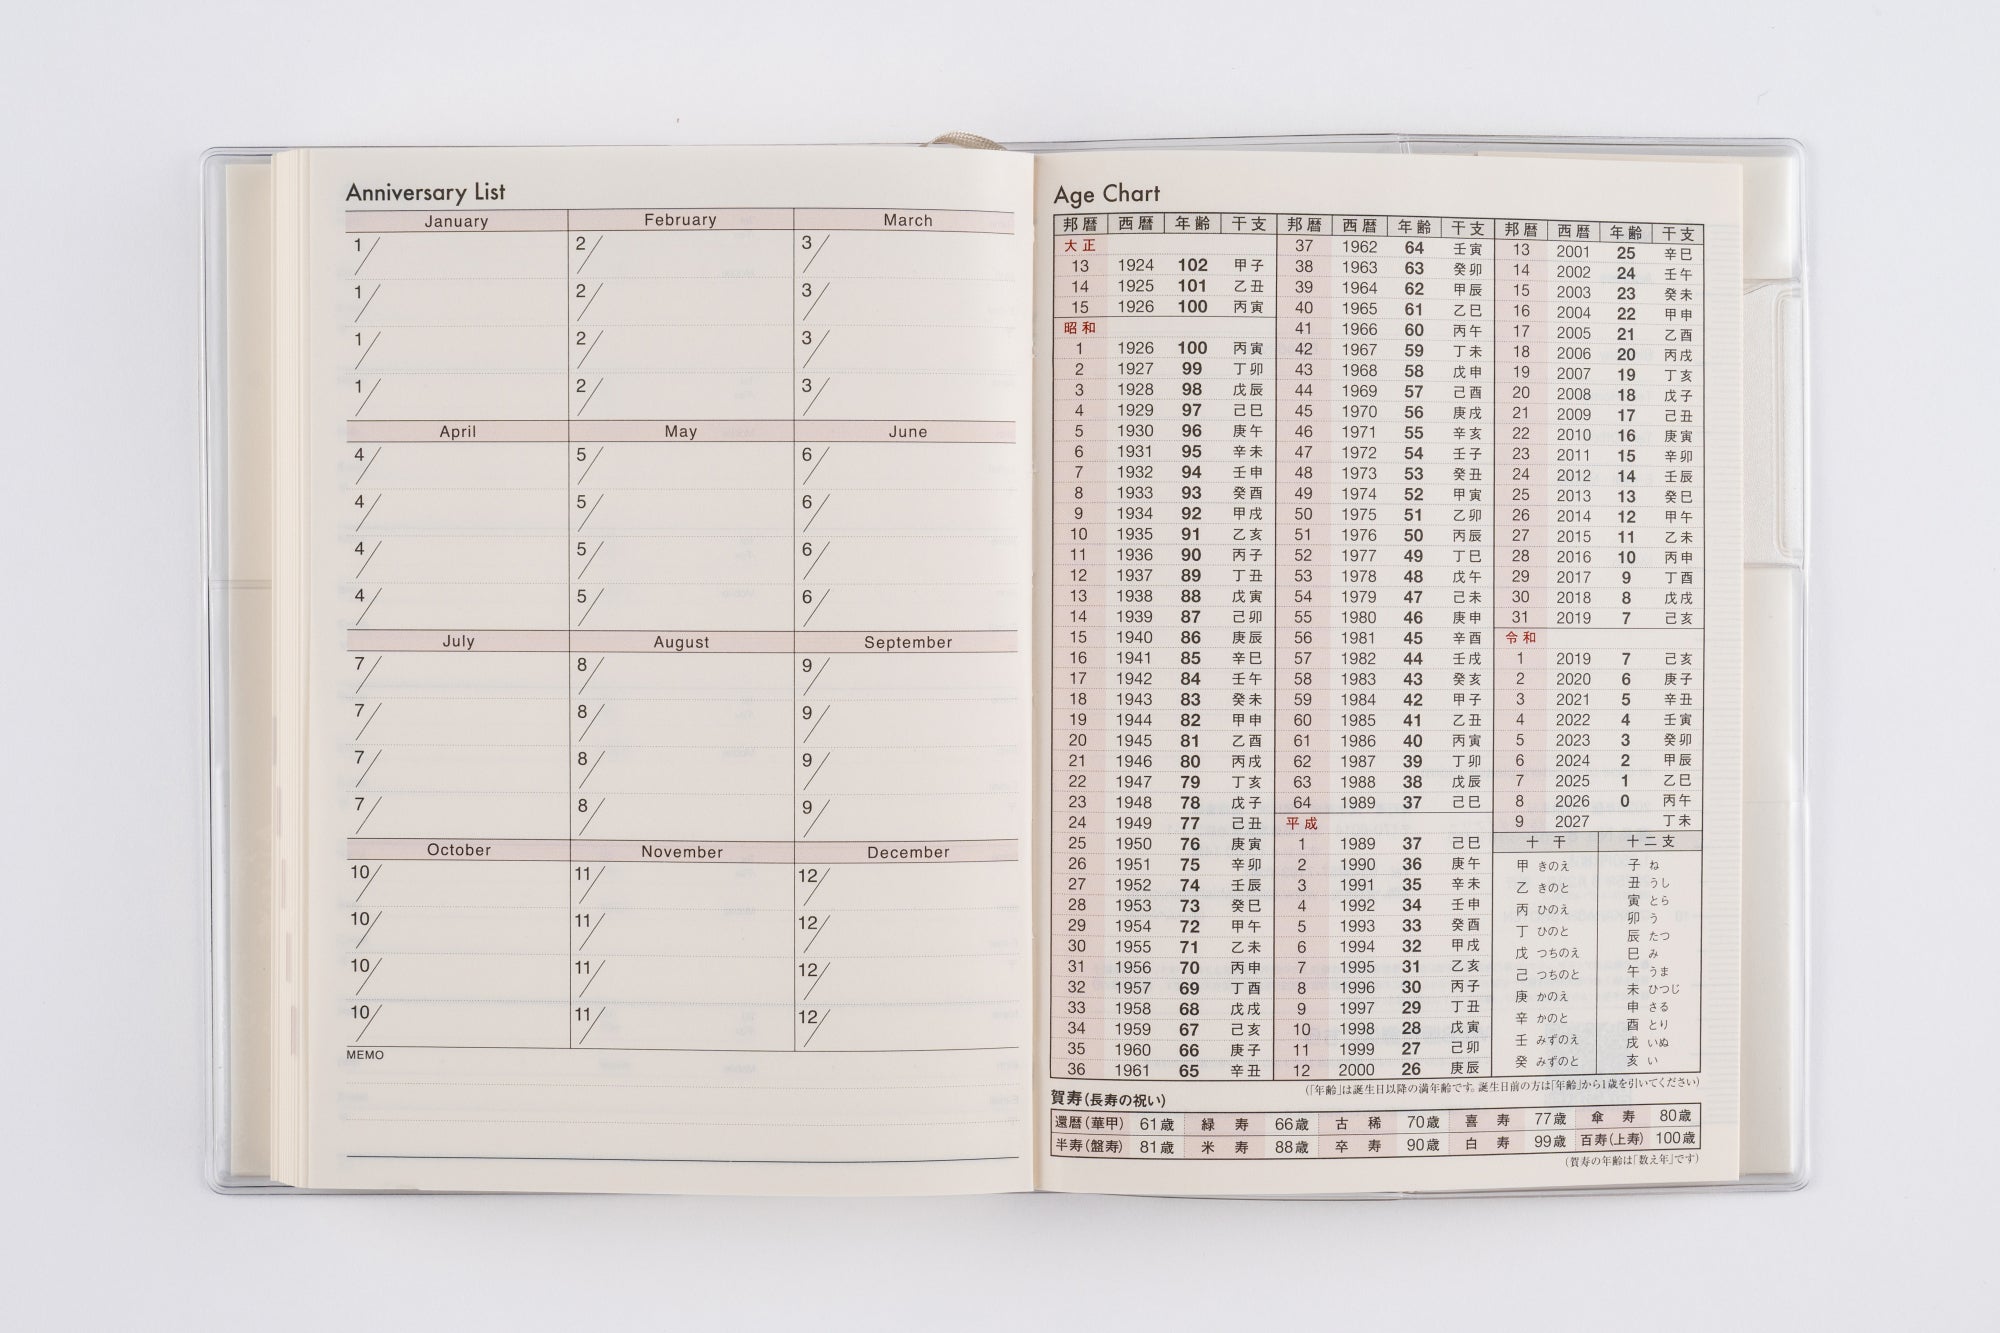 Anniversary List
January February March
1/ 2/ 3/
1/ 2/ 3/
1/ 2/ 3/
1/ 2/ 3/
April May June
4/ 5/ 6/
4/ 5/ 6/
4/ 5/ 6/
4/ 5/ 6/
July August September
7/ 8/ 9/
7/ 8/ 9/
7/ 8/ 9/
7/ 8/ 9/
October November December
10/ 11/ 12/
10/ 11/ 12/
10/ 11/ 12/
10/ 11/ 12/
MEMO
Age Chart
邦暦 西暦 年齢 干支
大正
13 1924 102 甲子
14 1925 101 乙丑
15 1926 100 丙寅
昭和
1 1926 100 丙寅
2 1927 99 丁卯
3 1928 98 戊辰
4 1929 97 己巳
5 1930 96 庚午
6 1931 95 辛未
7 1932 94 壬申
8 1933 93 癸酉
9 1934 92 甲戌
10 1935 91 乙亥
11 1936 90 丙子
12 1937 89 丁丑
13 1938 88 戊寅
14 1939 87 己卯
15 1940 86 庚辰
16 1941 85 辛巳
17 1942 84 壬午
18 1943 83 癸未
19 1944 82 甲申
20 1945 81 乙酉
21 1946 80 丙戌
22 1947 79 丁亥
23 1948 78 戊子
24 1949 77 己丑
25 1950 76 庚寅
26 1951 75 辛卯
27 1952 74 壬辰
28 1953 73 癸巳
29 1954 72 甲午
30 1955 71 乙未
31 1956 70 丙申
32 1957 69 丁酉
33 1958 68 戊戌
34 1959 67 己亥
35 1960 66 庚子
36 1961 65 辛丑
邦暦 西暦 年齢 干支
37 1962 64 壬寅
38 1963 63 癸卯
39 1964 62 甲辰
40 1965 61 乙巳
41 1966 60 丙午
42 1967 59 丁未
43 1968 58 戊申
44 1969 57 己酉
45 1970 56 庚戌
46 1971 55 辛亥
47 1972 54 壬子
48 1973 53 癸丑
49 1974 52 甲寅
50 1975 51 乙卯
51 1976 50 丙辰
52 1977 49 丁巳
53 1978 48 戊午
54 1979 47 己未
55 1980 46 庚申
56 1981 45 辛酉
57 1982 44 壬戌
58 1983 43 癸亥
59 1984 42 甲子
60 1985 41 乙丑
61 1986 40 丙寅
62 1987 39 丁卯
63 1988 38 戊辰
64 1989 37 己巳
平成
1 1989 37 己巳
2 1990 36 庚午
3 1991 35 辛未
4 1992 34 壬申
5 1993 33 癸酉
6 1994 32 甲戌
7 1995 31 乙亥
8 1996 30 丙子
9 1997 29 丁丑
10 1998 28 戊寅
11 1999 27 己卯
12 2000 26 庚辰
邦暦 西暦 年齢 干支
13 2001 25 辛巳
14 2002 24 壬午
15 2003 23 癸未
16 2004 22 甲申
17 2005 21 乙酉
18 2006 20 丙戌
19 2007 19 丁亥
20 2008 18 戊子
21 2009 17 己丑
22 2010 16 庚寅
23 2011 15 辛卯
24 2012 14 壬辰
25 2013 13 癸巳
26 2014 12 甲午
27 2015 11 乙未
28 2016 10 丙申
29 2017 9 丁酉
30 2018 8 戊戌
31 2019 7 己亥
令和
1 2019 7 己亥
2 2020 6 庚子
3 2021 5 辛丑
4 2022 4 壬寅
5 2023 3 癸卯
6 2024 2 甲辰
7 2025 1 乙巳
8 2026 0 丙午
9 2027 丁未
十干
甲 きのえ
乙 きのと
丙 ひのえ
丁 ひのと
戊 つちのえ
己 つちのと
庚 かのえ
辛 かのと
壬 みずのえ
癸 みずのと
十二支
子 ね
丑 うし
寅 とら
卯 う
辰 たつ
巳 み
午 うま
未 ひつじ
申 さる
酉 とり
戌 いぬ
亥 い
(「年齢」は誕生日以降の満年齢です。誕生日前の方は「年齢」から1歳を引いてください)
賀寿(長寿の祝い)
還暦(華甲) 61歳 緑寿 66歳 古稀 70歳 喜寿 77歳 傘寿 80歳
半寿(盤寿) 81歳 米寿 88歳 卒寿 90歳 白寿 99歳 百寿(上寿) 100歳
(賀寿の年齢は「数え年」です)